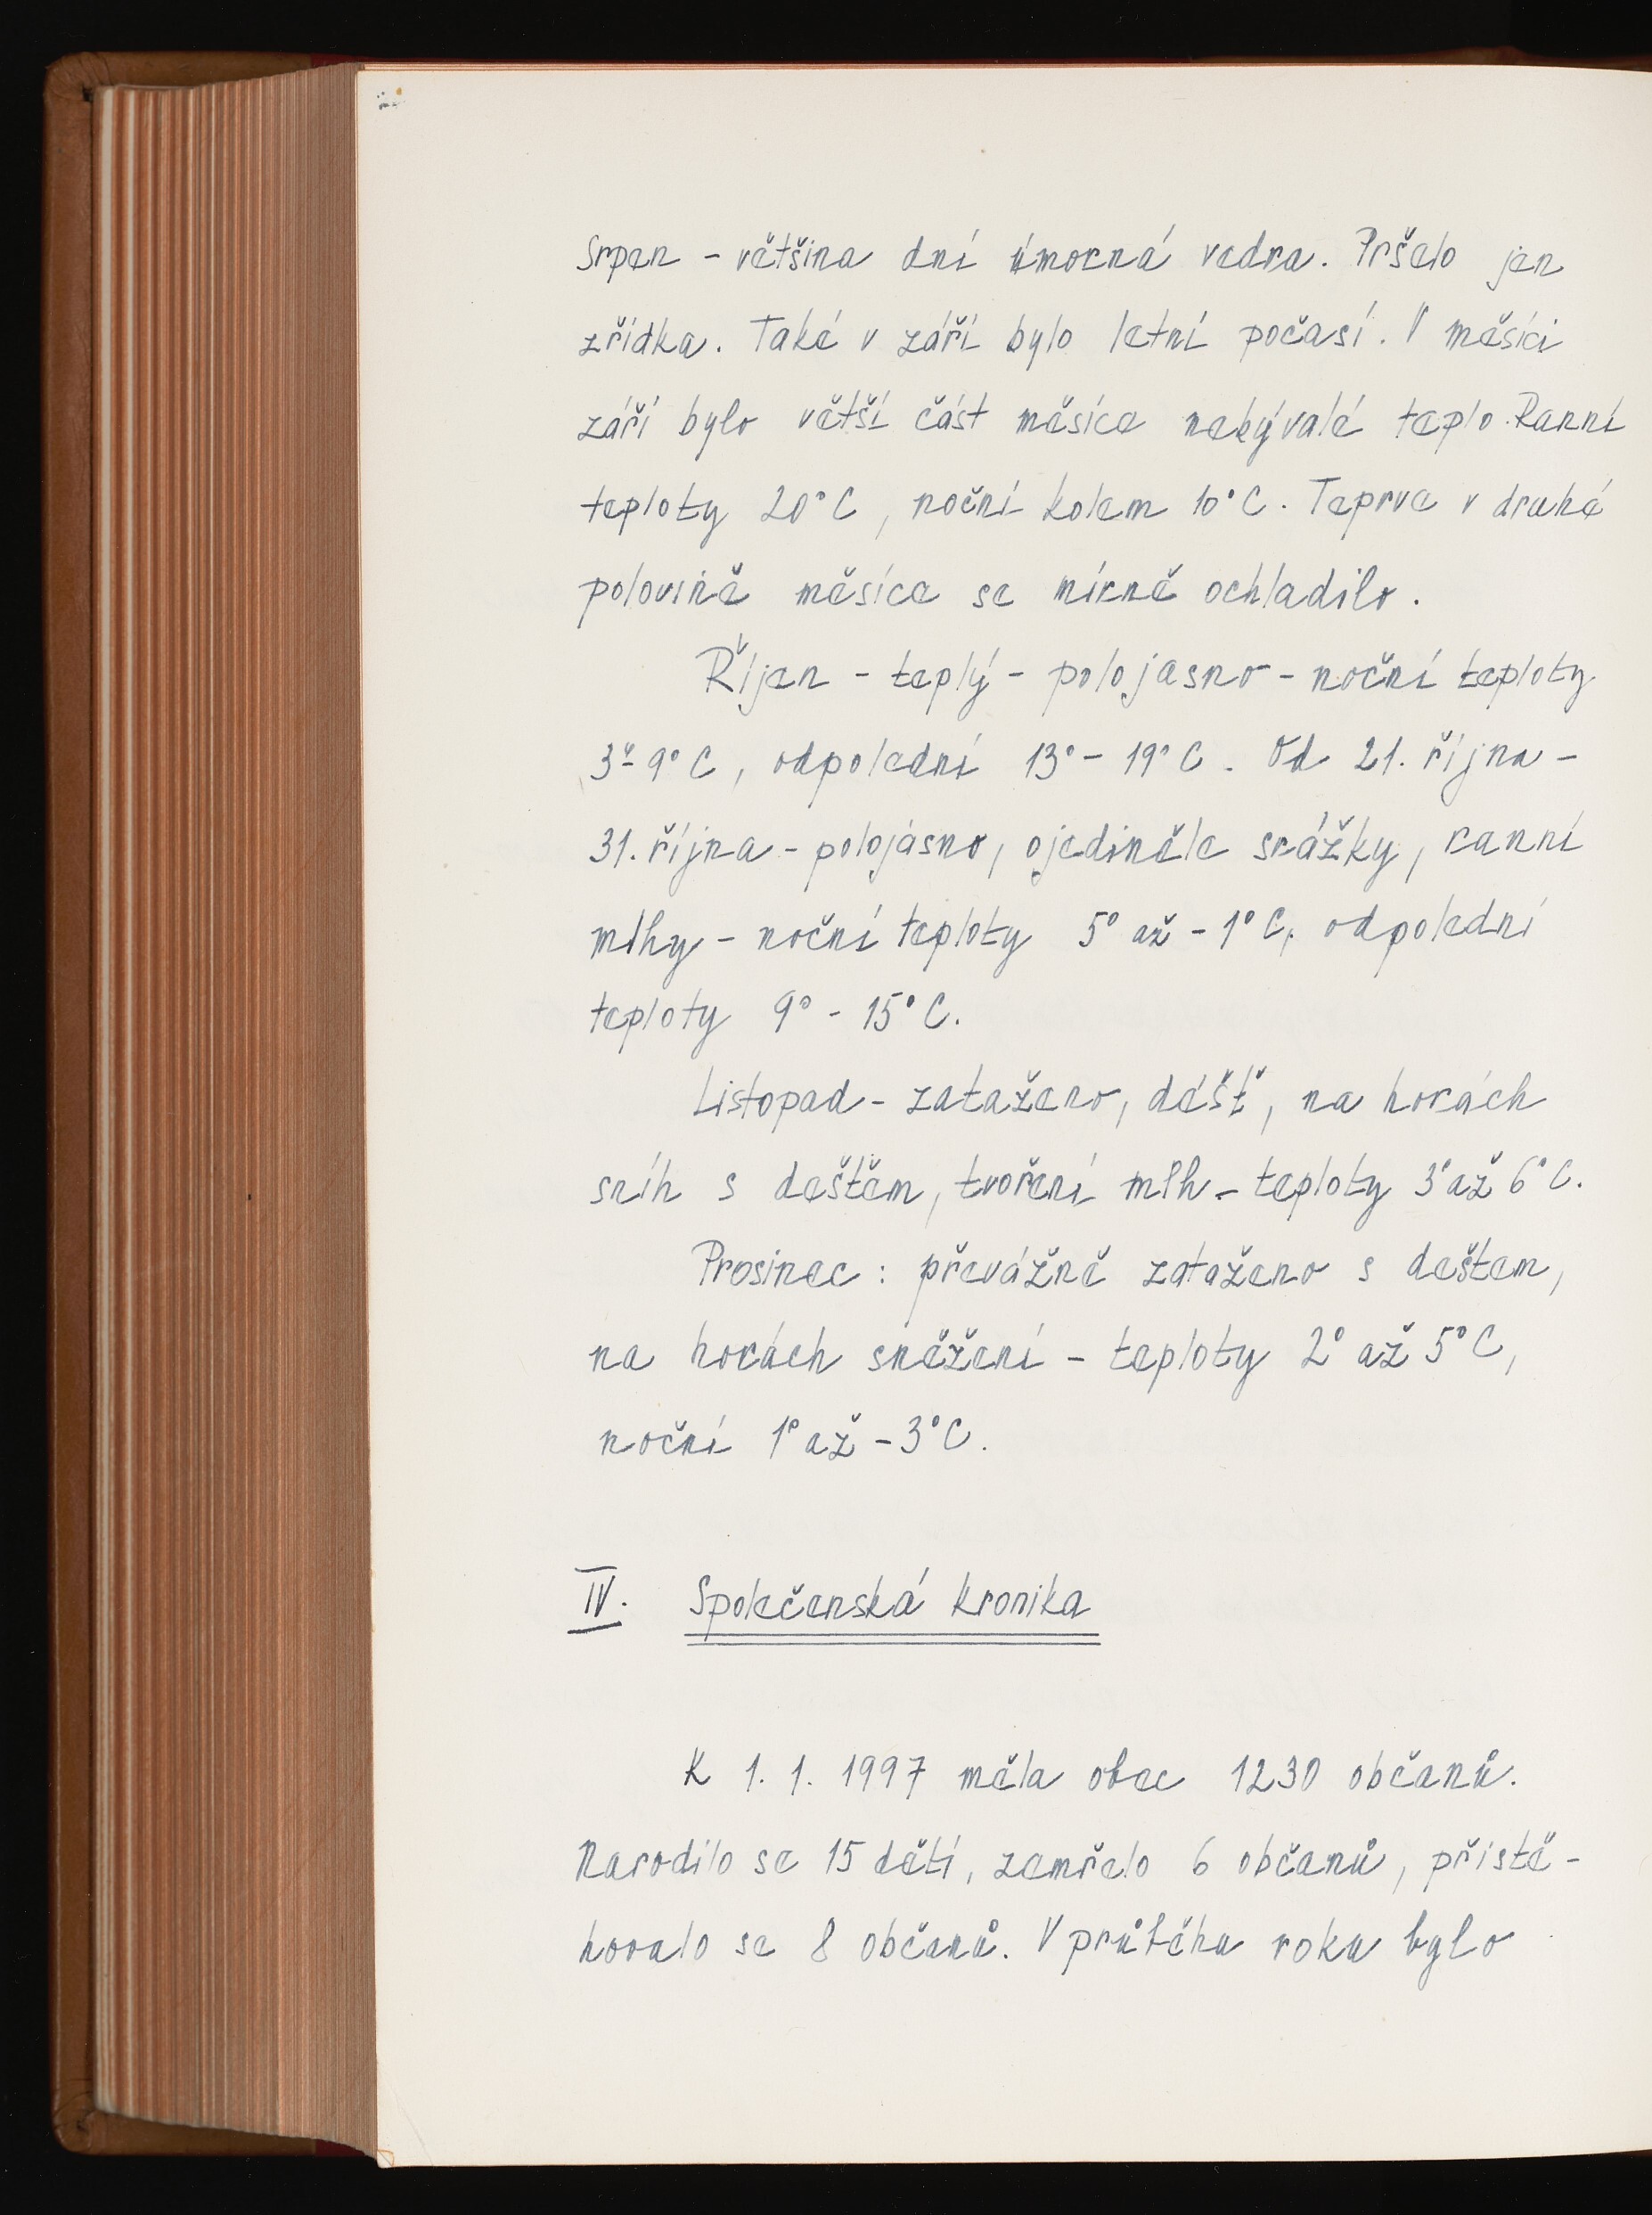 Srpen - většina dní úmorná vedra. Pršelo jen
zřídka. Také v září bylo letní počasí. V měsíci
září bylo větší část měsíce nebývalé teplo. Ranní
teploty 20°C, noční kolem 10°C. Teprve v druhé
polovině měsíce se mírně ochladilo.
Říjen - teplý - polojasno - noční teploty
3°- 9°C, odpolední 13° - 19°C. Od 21. října -
31. října - polojasno, ojediněle srážky, ranní
mlhy - noční teploty 5° až - 1°C, odpolední
teploty 9° - 15°C.
Listopad - zataženo, déšť, na horách
sníh s deštěm, tvoření mlh - teploty 3° až 6°C.
Prosinec : převážně zataženo s deštem,
na horách sněžení - teploty 2° až 5°C,
noční 1° až - 3°C.
IV. Společenská kronika
K 1. 1. 1997 měla obec 1230 občanů.
Narodilo se 15 dětí, zemřelo 6 občanů, přistě-
hovalo se 8 občanů. V průběhu roku bylo